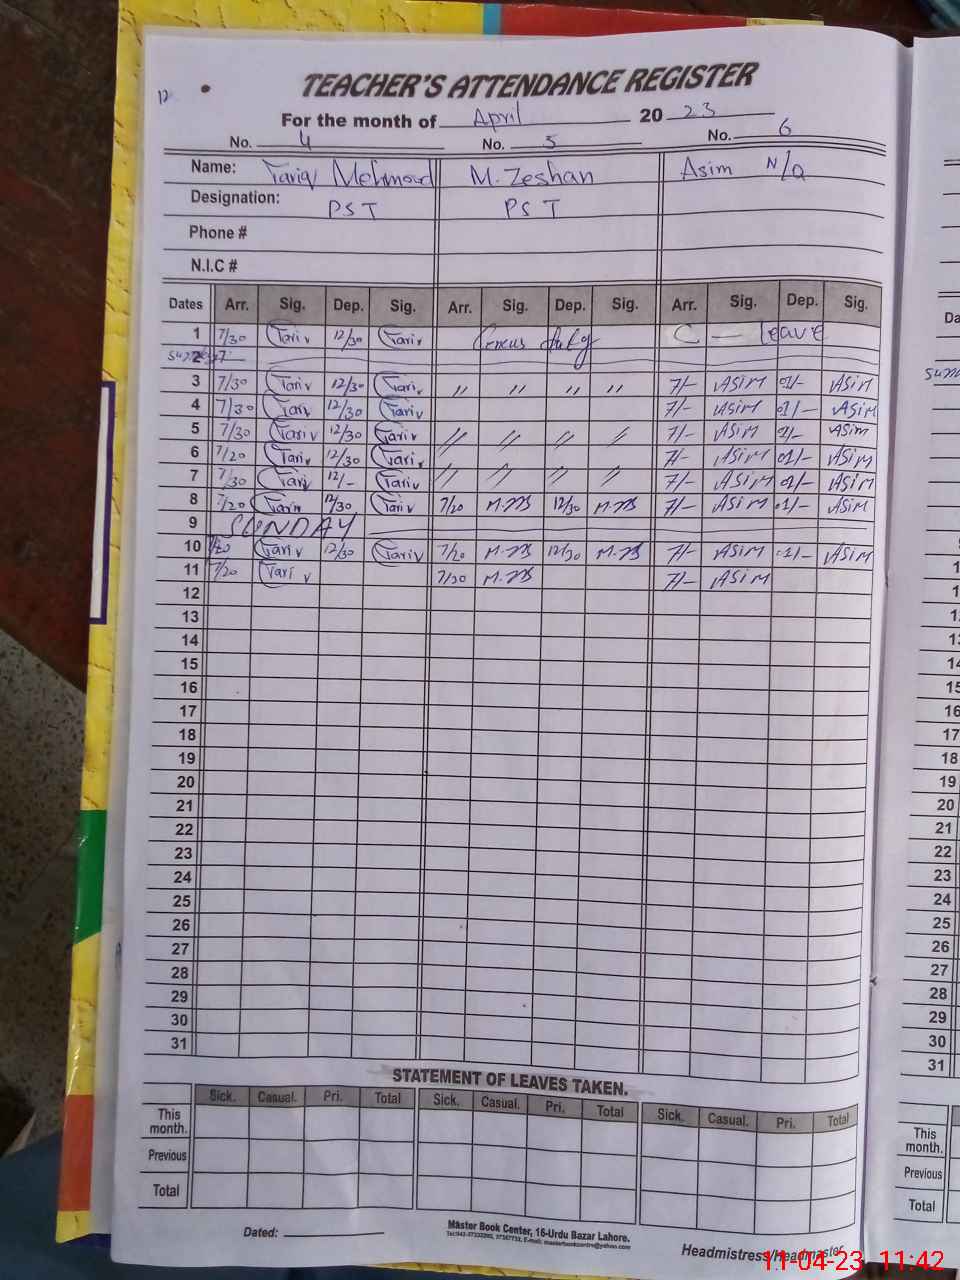 12
TEACHER'S ATTENDANCE REGISTER
For the month of April 20 23
No. 4 No. 5 No. 6
Name: Tariq Mehmood M. Zeshan Asim N/Q
Designation: PST PST
Phone #
N.I.C #
Dates Arr. Sig. Dep. Sig. Arr. Sig. Dep. Sig. Arr. Sig. Dep. Sig.
1 7/30 Tariv 12/30 Tariv C — Leave
2
3 7/30 Tariv 12/30 Tariv " " " " 7/- ASiM 01/- ASiM
4 7/30 Tariv 12/30 Tariv 7/- ASiM 01/- ASiM
5 7/30 Tariv 12/30 Tariv " " " " 7/- ASiM 01/- ASiM
6 7/20 Tariv 12/30 Tariv 7/- ASiM 01/- ASiM
7 7/30 Tariv 12/- Tariv " " " " 7/- ASiM 01/- ASiM
8 7/20 Tariv 12/30 Tariv 7/20 12/30 7/- ASiM 01/- ASiM
9 SUNDAY
10 7/20 Tariv 12/30 Tariv 7/20 12/30 7/- ASiM 01/- ASiM
11 7/20 Tariv 7/20 7/- ASiM
12
13
14
15
16
17
18
19
20
21
22
23
24
25
26
27
28
29
30
31
STATEMENT OF LEAVES TAKEN.
Sick. Casual. Pri. Total Sick. Casual. Pri. Total Sick. Casual. Pri. Total
This month.
Previous
Total
Dated:
Master Book Center, 16-Urdu Bazar Lahore.
Headmistress/Headmaster
11-04-23 11:42
Da
13
14
15
16
17
18
19
20
21
22
23
24
25
26
27
28
29
30
31
This month.
Previous
Total